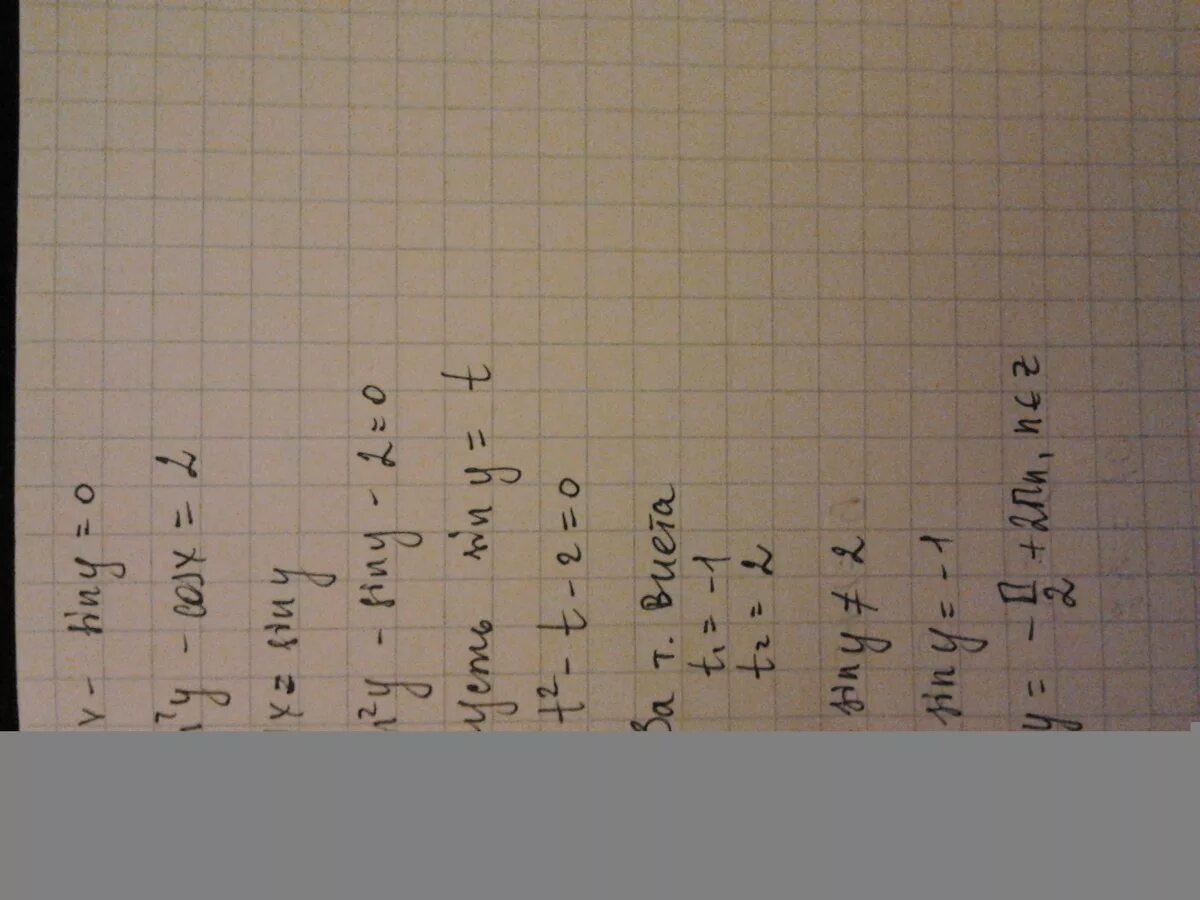 x - sin y = 0
n²y - cos x = 2
x = sin y
n²y - sin y - 2 = 0
усть sin y = t
t² - t - 2 = 0
За т. Виета
t₁ = -1
t₂ = 2
sin y ≠ 2
sin y = -1
y = - П/2 + 2Пn, n ∈ z